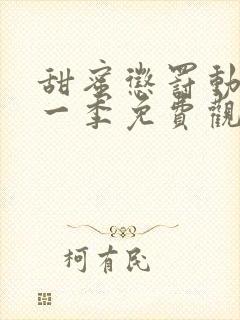 甜蜜懲罰動
一季免費觀
柯有民